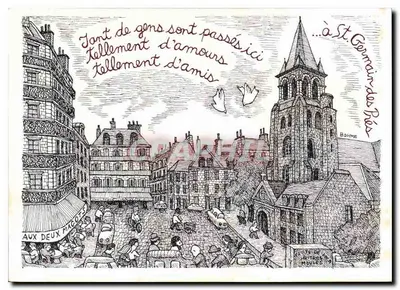 Tant de gens sont passés ici
tellement d'amours
tellement d'amis
...à St. Germain-des-Prés
AUX DEUX